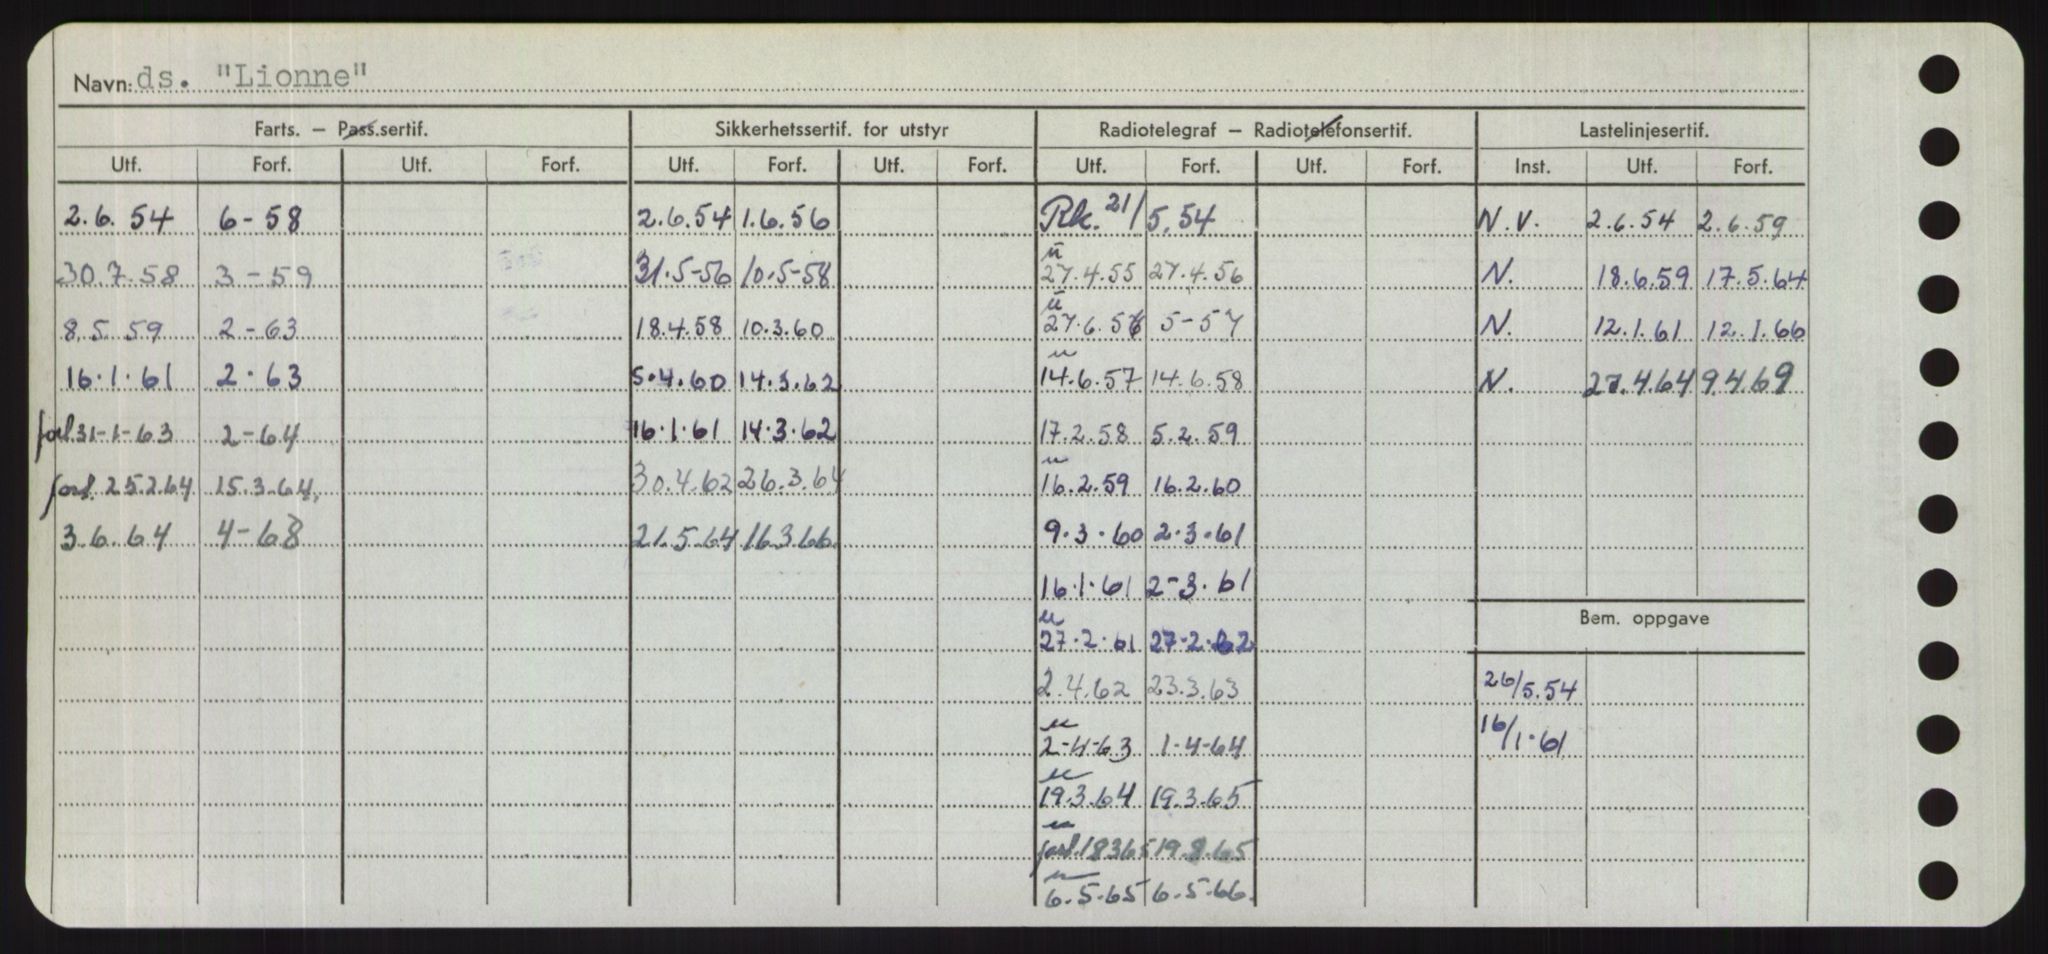 Navn: ds. "Lionne"
Farts. – Pass.sertif. Sikkerhetssertif. for utstyr Radiotelegraf – Radiotelefonsertif. Lastelinjesertif.
Utf. Forf. Utf. Forf. Utf. Forf. Utf. Forf. Utf. Forf. Utf. Forf. Inst. Utf. Forf.
2.6.54 6-58 2.6.54 1.6.56 Rk. 21/5.54 N.V. 2.6.54 2.6.59
ū
30.7.58 3-59 31.5-56 10.5-58 27.4.55 27.4.56 N. 18.6.59 17.5.64
ū
8.5.59 2-63 18.4.58 10.3.60 27.6.56 5-57 N. 12.1.61 12.1.66
u
16.1.61 2.63 5.4.60 14.3.62 14.6.57 14.6.58 N. 27.4.64 9.4.69
forl. 31-1-63 2-64 16.1.61 14.3.62 17.2.58 5.2.59
u
forl. 25.2.64 15.3.64, 30.4.62 26.3.64 16.2.59 16.2.60
3.6.64 4-68 21.5.64 16.3.66 9.3.60 2.3.61
16.1.61 2-3.61
u Bem. oppgave
27.2.61 27-2.62
2.4.62 23.3.63 26/5.54
u
2-4-63 1-4-64 16/1.61
u
19.3.64 19.3.65
u
forl. 18365 19.8.65
u
6.5.65 6.5.66.